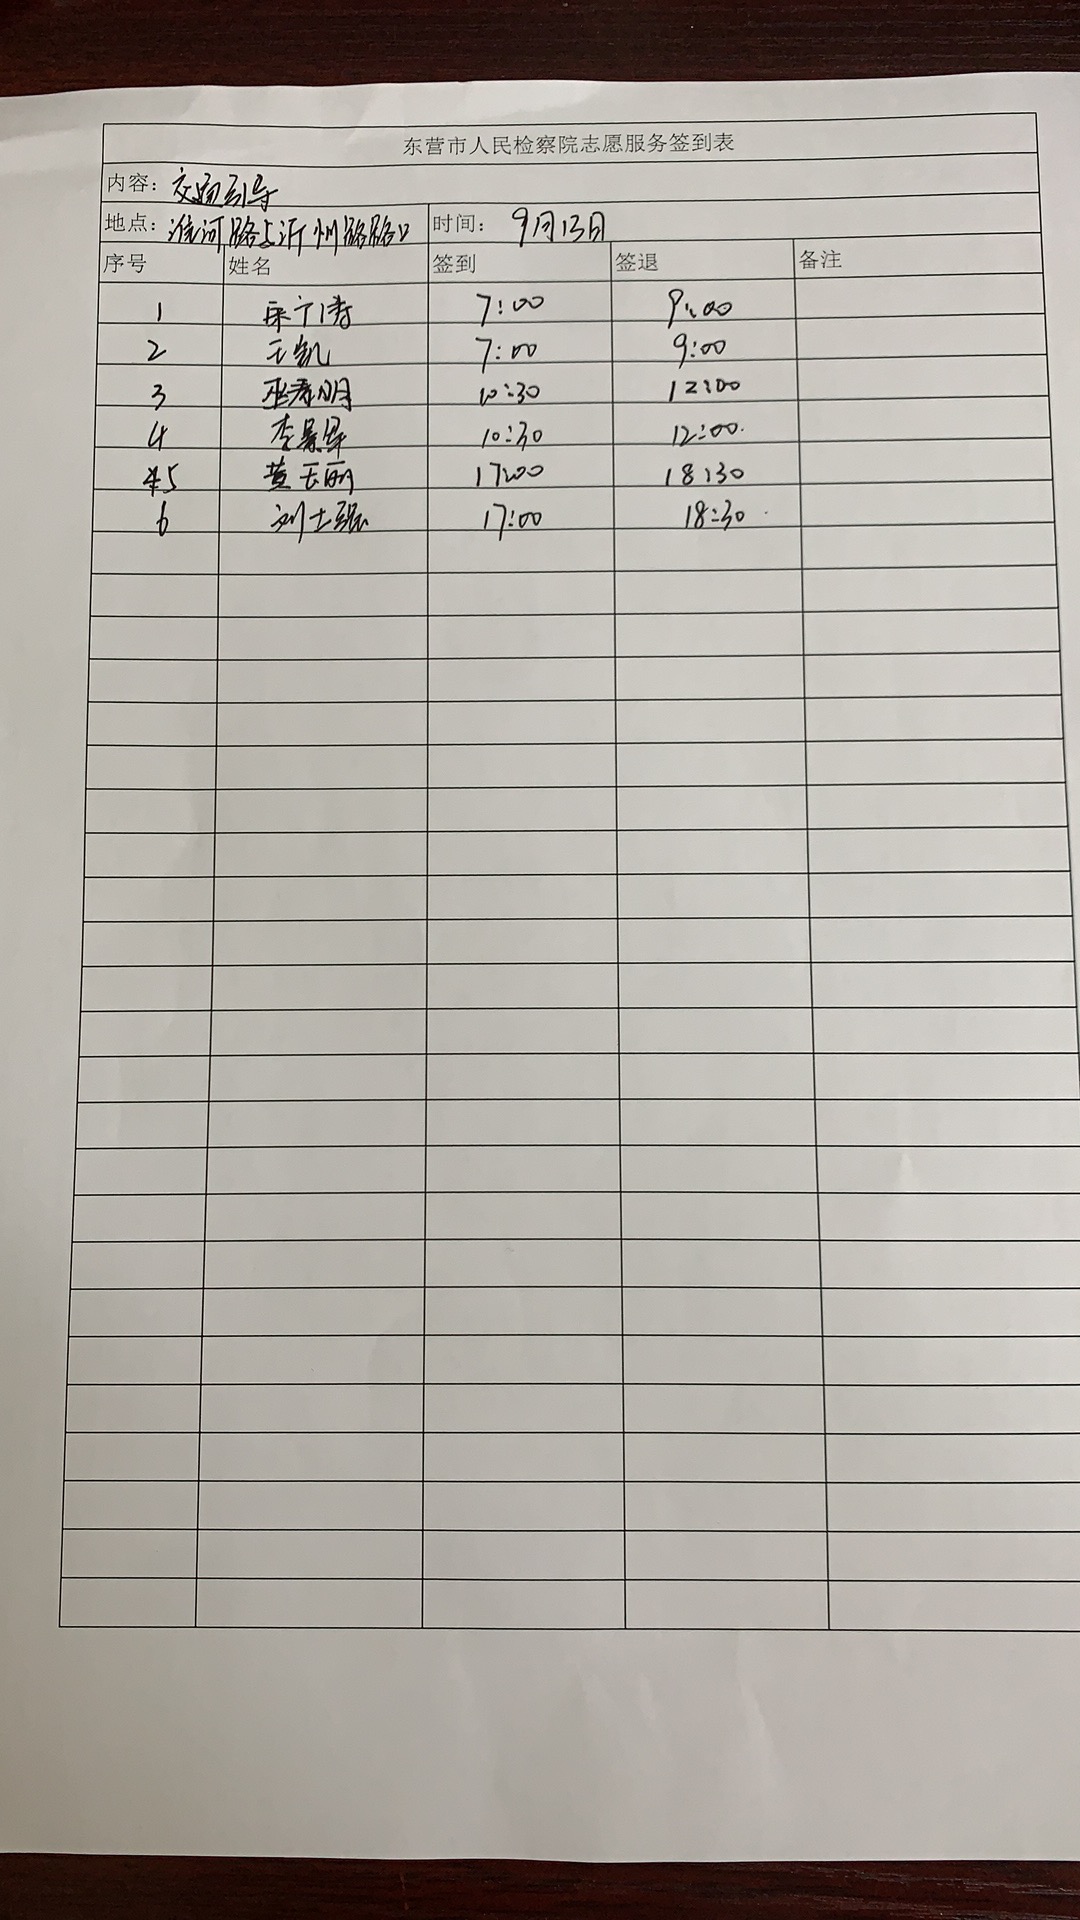 东营市人民检察院志愿服务签到表
内容: 交通引导
地点: 淮河路与沂州路路口 时间: 9月13日
序号 姓名 签到 签退 备注
1 7:00 9:00
2 王凯 7:00 9:00
3 10:30 12:00
4 李景 10:30 12:00
5 黄玉丽 17:00 18:30
6 刘士强 17:00 18:30